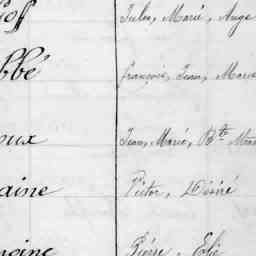 off Jules, Marie, Ange
bbé françois, Jean, Marie
oux Jean, Marie, Bte
aine Victor, Désiré
moine Pierre, Elie